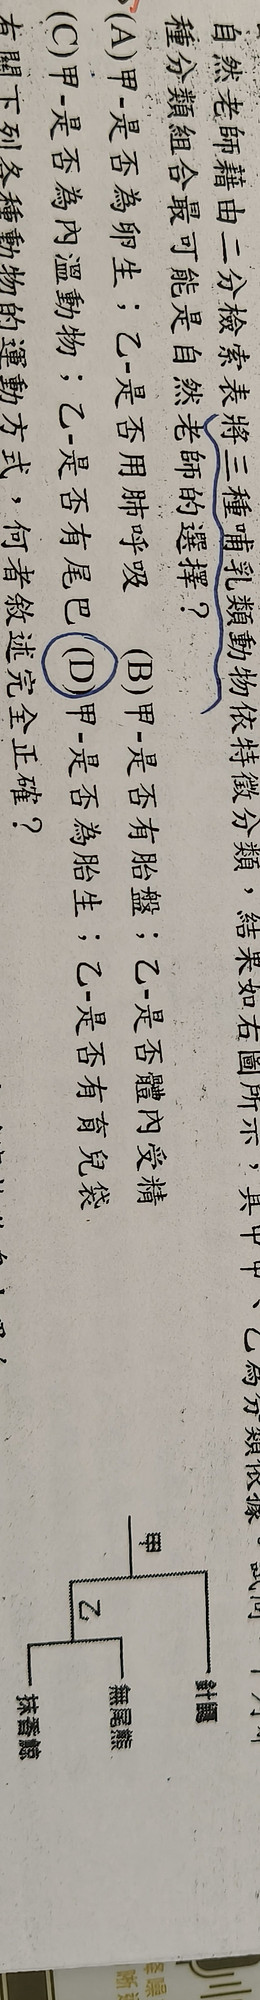 自然老師藉由二分檢索表將三種哺乳類動物依特徵分類，結果如右圖所示，其中甲、乙為分類依據。試問
種分類組合最可能是自然老師的選擇？
(A)甲-是否為卵生；乙-是否用肺呼吸 (B)甲-是否有胎盤；乙-是否體內受精
(C)甲-是否為內溫動物；乙-是否有尾巴 (D)甲-是否為胎生；乙-是否有育兒袋
有關下列各種動物的運動方式，何者敘述完全正確？
甲
針鼴
乙
無尾熊
抹香鯨